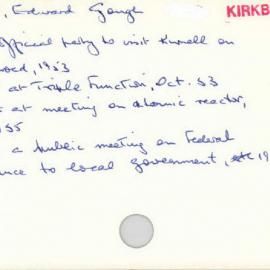 , Edward Gough KIRKB
official party to visit Kurnell on
, 1953
at Triple Function, Oct. 53
at meeting on atomic reactor,
55
a public meeting on Federal
ance to local government, etc 19